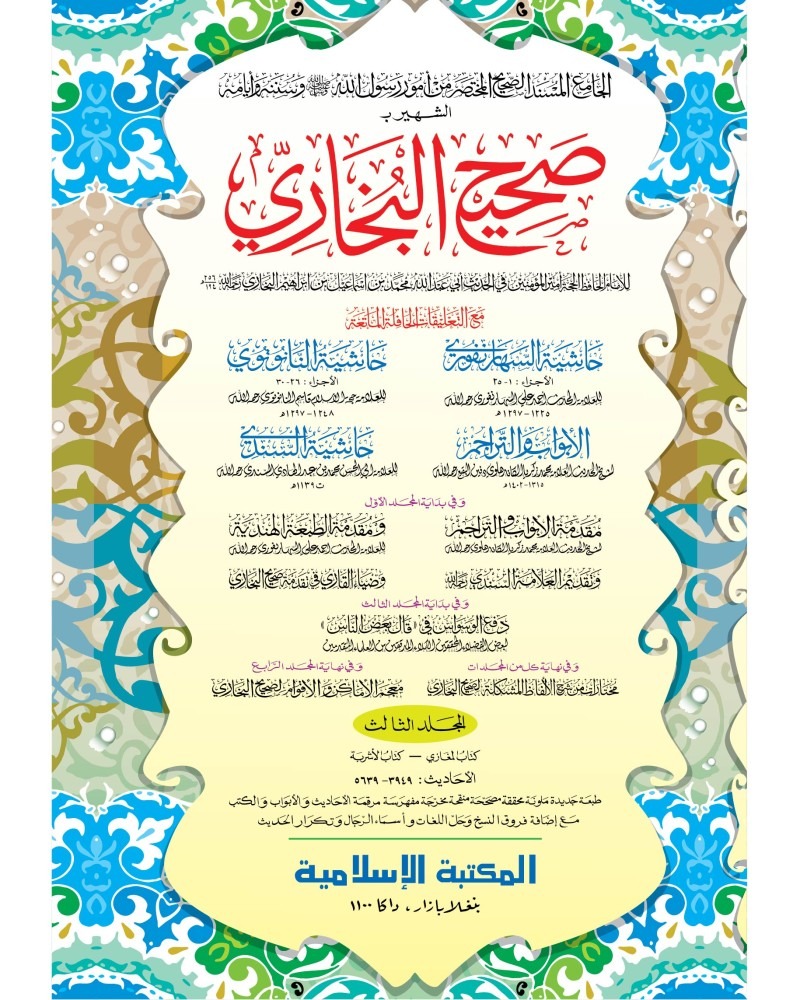 الجامع المسند الصحيح المختصر من أمور رسول الله ﷺ وسننه وأيامه
الشهير ب
صحيح البخاري
للإمام الحافظ الحجة أمير المؤمنين في الحديث أبي عبد الله محمد بن إسماعيل بن إبراهيم البخاري رحمه الله
مع التعليقات الحافلة الماتعة
حاشية السهارنفوري
الأجزاء : ١-٢٥
للعلامة المحدث أحمد علي السهارنفوري رحمه الله
١٢٢٥-١٢٩٧هـ
حاشية النانوتوي
الأجزاء : ٢٦-٣٠
للعلامة حجة الإسلام قاسم النانوتوي رحمه الله
١٢٤٨-١٢٩٧هـ
الأبواب والتراجم
لشيخ الحديث العلامة محمد زكريا الكاندهلوي دفين البقيع رحمه الله
١٣١٥-١٤٠٢هـ
حاشية السندي
للعلامة أبي الحسن محمد بن عبد الهادي السندي رحمه الله
ت ١١٣٩هـ
وفي بداية المجلد الأول
مقدمة الأبواب والتراجم
لشيخ الحديث العلامة محمد زكريا الكاندهلوي رحمه الله
ومقدمة الطبعة الهندية
للعلامة المحدث أحمد علي السهارنفوري رحمه الله
وتقديم العلامة السندي رحمه الله
وضياء القاري في تقدمة صحيح البخاري
وفي بداية المجلد الثالث
دفع الوسواس في ﴿قال بعض الناس﴾
لبعض الفضلاء المحققين النبلاء المدققين من العلماء المتقدمين
وفي نهاية كل من المجلدات
مختارات من شرح الألفاظ المشكلة لصحيح البخاري
وفي نهاية المجلد الرابع
معجم الأماكن والأقوام لصحيح البخاري
المجلد الثالث
كتاب المغازي — كتاب الأشربة
الأحاديث : ٣٩٤٩- ٥٦٣٩
طبعة جديدة ملونة محققة مصححة منقحة مخرجة مفهرسة مرقمة الأحاديث والأبواب والكتب
مع إضافة فروق النسخ وحل اللغات وأسماء الرجال وتكرار الحديث
المكتبة الإسلامية
بنغلا بازار، داكا ١١٠٠